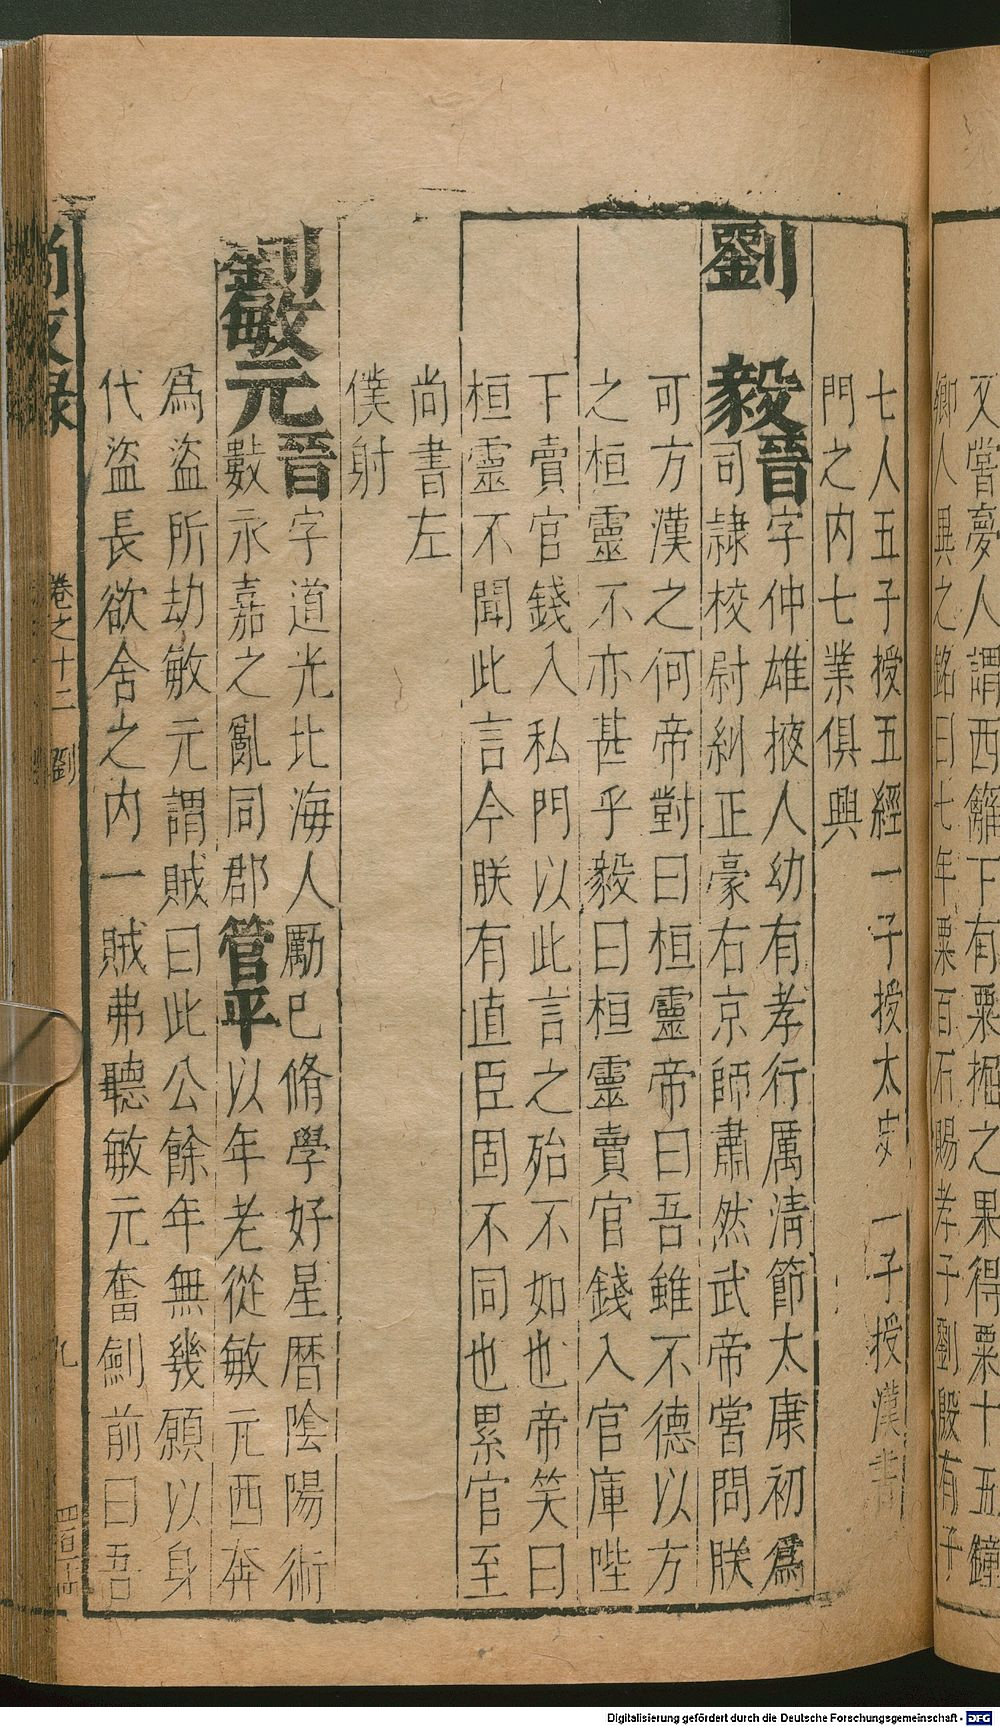 又嘗夢人謂西籬下有粟掘之果得粟十五鐘
銘曰七年粟百石賜孝子劉殷有子
七人五子授五經一子授太史一子授漢書
門之内七業俱興
劉毅晉字仲雄掖人幼有孝行厲清節太康初為
司隷校尉糾正豪右京師肅然武帝嘗問朕
可方漢之何帝對曰桓靈帝曰吾雖不德以方
之桓靈不亦甚乎毅曰桓靈賣官錢入官庫陛
下賣官錢入私門以此言之殆不如也帝笑曰
桓靈不聞此言今朕有直臣固不同也累官至
尚書左
僕射
劉敏元晉字道光北海人厲己脩學好星暦陰陽術
數永嘉之亂同郡管平以年老從敏元西奔
為盜所劫敏元謂賊曰此公餘年無幾願以身
代盜長欲舍之内一賊弗聽敏元奮劍前曰吾
尚友録
卷之十二
劉
九